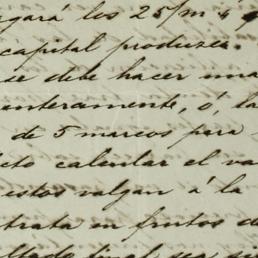 gará los 25/m á
capital produzca.
se debe hacer una
anteramente, ó, la
de 5 marcos para
cto calcular el va
estos valgan á la
trata en frutos de
ltado final sea si